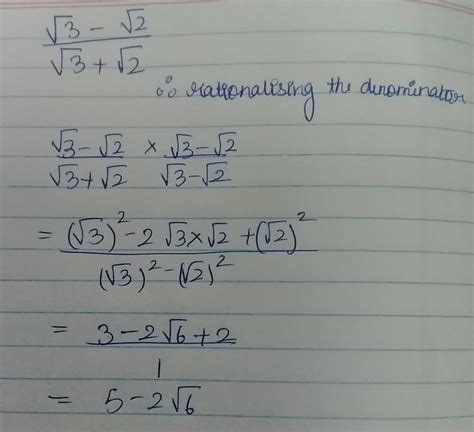 √3 - √2 / √3 + √2
∴ rationalising the denominator
√3 - √2 / √3 + √2 × √3 - √2 / √3 - √2
= (√3)² - 2 √3 × √2 + (√2)² / (√3)² - (√2)²
= 3 - 2√6 + 2 / 1
= 5 - 2√6